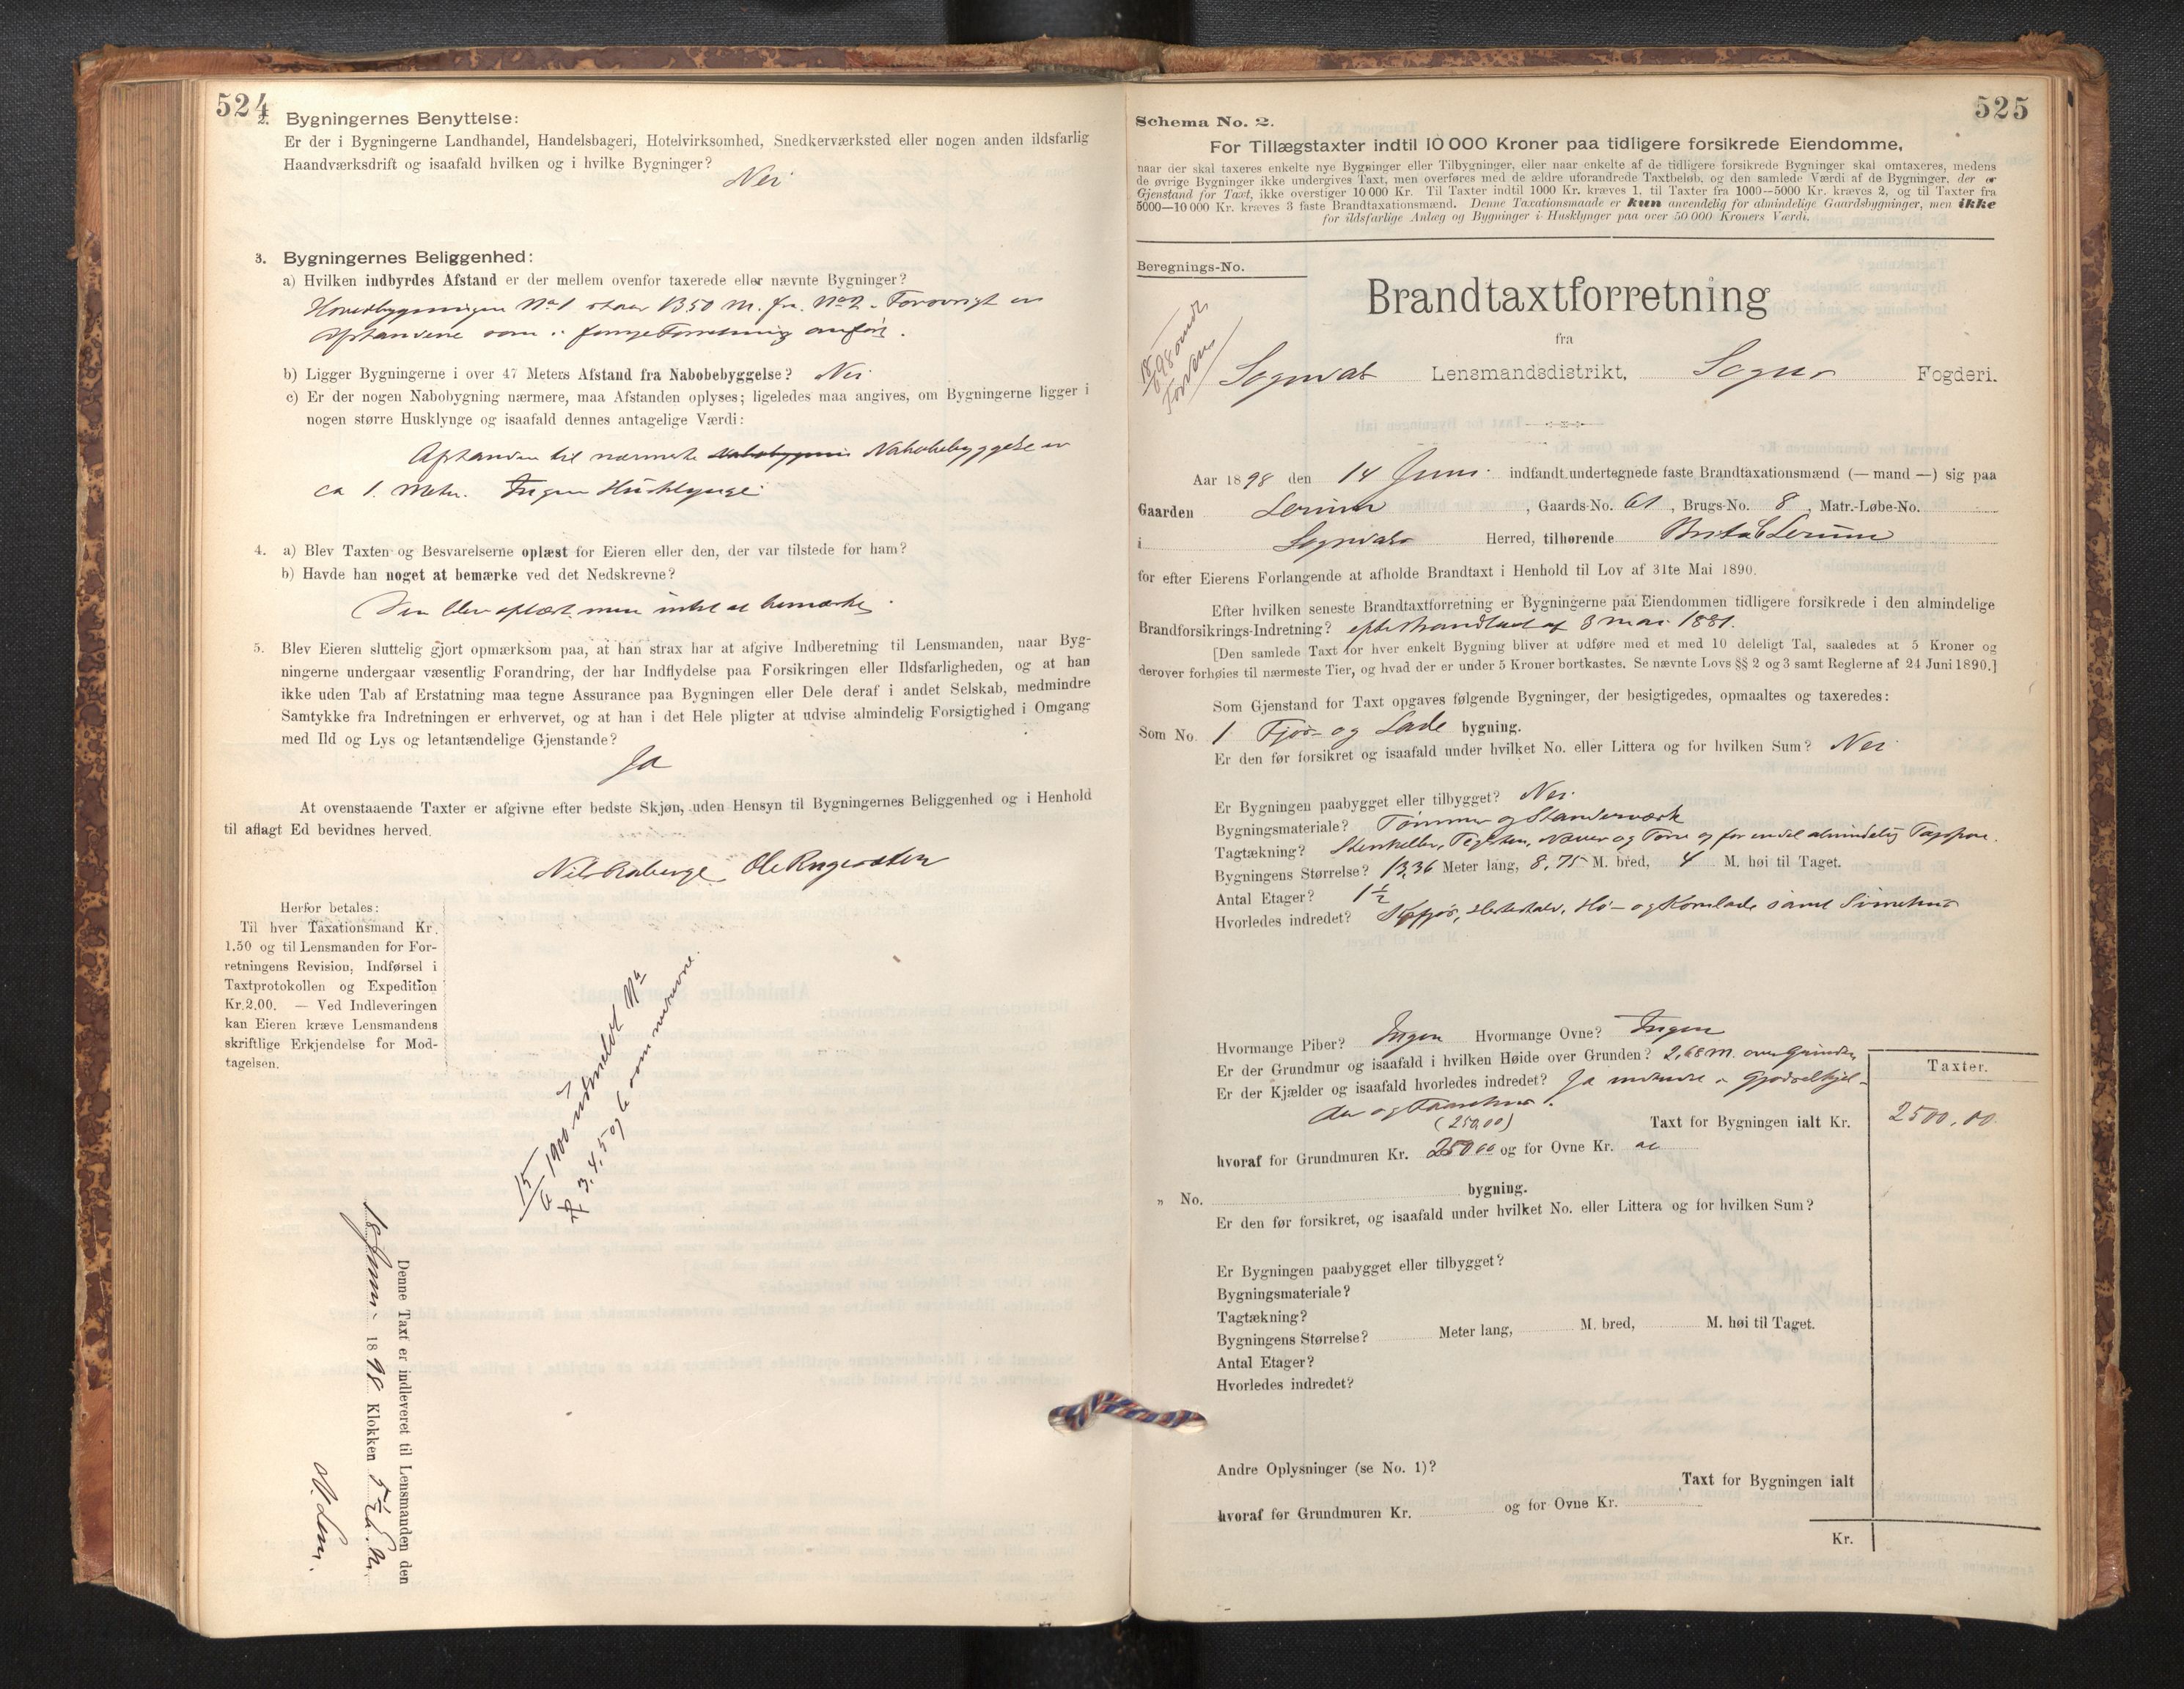 524
2. Bygningernes Benyttelse:
Er der i Bygningerne Landhandel, Handelsbageri, Hotelvirksomhed, Snedkerværksted eller nogen anden ildsfarlig
Haandværksdrift og isaafald hvilken og i hvilke Bygninger?
Nei
3. Bygningernes Beliggenhed:
a) Hvilken indbyrdes Afstand er der mellem ovenfor taxerede eller nævnte Bygninger?
Hovedbygningen No 1 staar 1350 M. fra No 2. Forøvrigt er
Afstandene som i forrige Forretning anført.
b) Ligger Bygningerne i over 47 Meters Afstand fra Nabobebyggelse? Nei
c) Er der nogen Nabobygning nærmere, maa Afstanden oplyses; ligeledes maa angives, om Bygningerne ligger i
nogen større Husklynge og isaafald dennes antagelige Værdi:
Afstanden til nærmeste Nabobebyggelse er
ca 1. Meter. Ingen Husklynge
4. a) Blev Taxten og Besvarelserne oplæst for Eieren eller den, der var tilstede for ham?
b) Havde han noget at bemærke ved det Nedskrevne?
Den blev oplæst, men intet at bemærke.
5. Blev Eieren sluttelig gjort opmærksom paa, at han strax har at afgive Indberetning til Lensmanden, naar Byg-
ningerne undergaar væsentlig Forandring, der har Indflydelse paa Forsikringen eller Ildsfarligheden, og at han
ikke uden Tab af Erstatning maa tegne Assurance paa Bygningen eller Dele deraf i andet Selskab, medmindre
Samtykke fra Indretningen er erhvervet, og at han i det Hele pligter at udvise almindelig Forsigtighed i Omgang
med Ild og Lys og letantændelige Gjenstande?
Ja
At ovenstaaende Taxter er afgivne efter bedste Skjøn, uden Hensyn til Bygningernes Beliggenhed og i Henhold
til aflagt Ed bevidnes herved.
Nils Ole
Herfor betales:
Til hver Taxationsmand Kr.
1.50 og til Lensmanden for For-
retningens Revision, Indførsel i
Taxtprotokollen og Expedition
Kr.2.00. — Ved Indleveringen
kan Eieren kræve Lensmandens
skriftlige Erkjendelse for Mod-
tagelsen.
15/6 1900 udmeldt No
3. 4. 5 og 6
Denne Taxt er indleveret til Lensmanden den
18 Juni 1898 Klokken 5½
525
Schema No. 2.
For Tillægstaxter indtil 10 000 Kroner paa tidligere forsikrede Eiendomme,
naar der skal taxeres enkelte nye Bygninger eller Tilbygninger, eller naar enkelte af de tidligere forsikrede Bygninger skal omtaxeres, medens
de øvrige Bygninger ikke undergives Taxt, men overføres med de ældre uforandrede Taxtbeløb, og den samlede Værdi af de Bygninger, der er
Gjenstand for Taxt, ikke overstiger 10 000 Kr. Til Taxter indtil 1000 Kr. kræves 1, til Taxter fra 1000—5000 Kr. kræves 2, og til Taxter fra
5000—10 000 Kr. kræves 3 faste Brandtaxationsmænd. Denne Taxationsmaade er kun anvendelig for almindelige Gaardsbygninger, men ikke
for ildsfarlige Anlæg og Bygninger i Husklynger paa over 50 000 Kroners Værdi.
Beregnings-No.
Brandtaxtforretning
fra
Sogndal Lensmandsdistrikt, Sogns Fogderi.
Aar 1898 den 14 Juni indfandt undertegnede faste Brandtaxationsmænd (— mand —) sig paa
Gaarden Lerum, Gaards-No. 61, Brugs-No. 8, Matr.-Løbe-No.
i Sogndals Herred, tilhørende Lerum
for efter Eierens Forlangende at afholde Brandtaxt i Henhold til Lov af 31te Mai 1890.
Efter hvilken seneste Brandtaxtforretning er Bygningerne paa Eiendommen tidligere forsikrede i den almindelige
Brandforsikrings-Indretning? efter Brandtaxt af 3 Mai 1881.
[Den samlede Taxt for hver enkelt Bygning bliver at udføre med et med 10 deleligt Tal, saaledes at 5 Kroner og
derover forhøies til nærmeste Tier, og hvad der er under 5 Kroner bortkastes. Se nævnte Lovs §§ 2 og 3 samt Reglerne af 24 Juni 1890.]
Som Gjenstand for Taxt opgaves følgende Bygninger, der besigtigedes, opmaaltes og taxeredes:
Som No. 1 Fjøs og Lade bygning.
Er den før forsikret og isaafald under hvilket No. eller Littera og for hvilken Sum? Nei
Er Bygningen paabygget eller tilbygget? Nei
Bygningsmateriale? Tømmer og Standerværk
Tagtækning? Stenheller, Tegsten, Næver og Torv og for endel almindelig
Bygningens Størrelse? 13,36 Meter lang, 8,75 M. bred, 4 M. høi til Taget.
Antal Etager? 1½
Hvorledes indredet? Hestestald, Hø- og Kornlade samt Svinehus
Hvormange Piber? Ingen Hvormange Ovne? Ingen
Er der Grundmur og isaafald i hvilken Høide over Grunden? 2,68 M. over Grunden
Er der Kjælder og isaafald hvorledes indredet? Ja indredet Gjødselkjel-
der og Faarehus.
(250,00)
Taxt for Bygningen ialt Kr.
Taxter.
2500,00
hvoraf for Grundmuren Kr. 250 00 og for Ovne Kr.
„ No. bygning.
Er den før forsikret, og isaafald under hvilket No. eller Littera og for hvilken Sum?
Er Bygningen paabygget eller tilbygget?
Bygningsmateriale?
Tagtækning?
Bygningens Størrelse? Meter lang, M. bred, M. høi til Taget.
Antal Etager?
Hvorledes indredet?
Andre Oplysninger (se No. 1)?
Taxt for Bygningen ialt
hvoraf for Grundmuren Kr. og for Ovne Kr.
Kr.